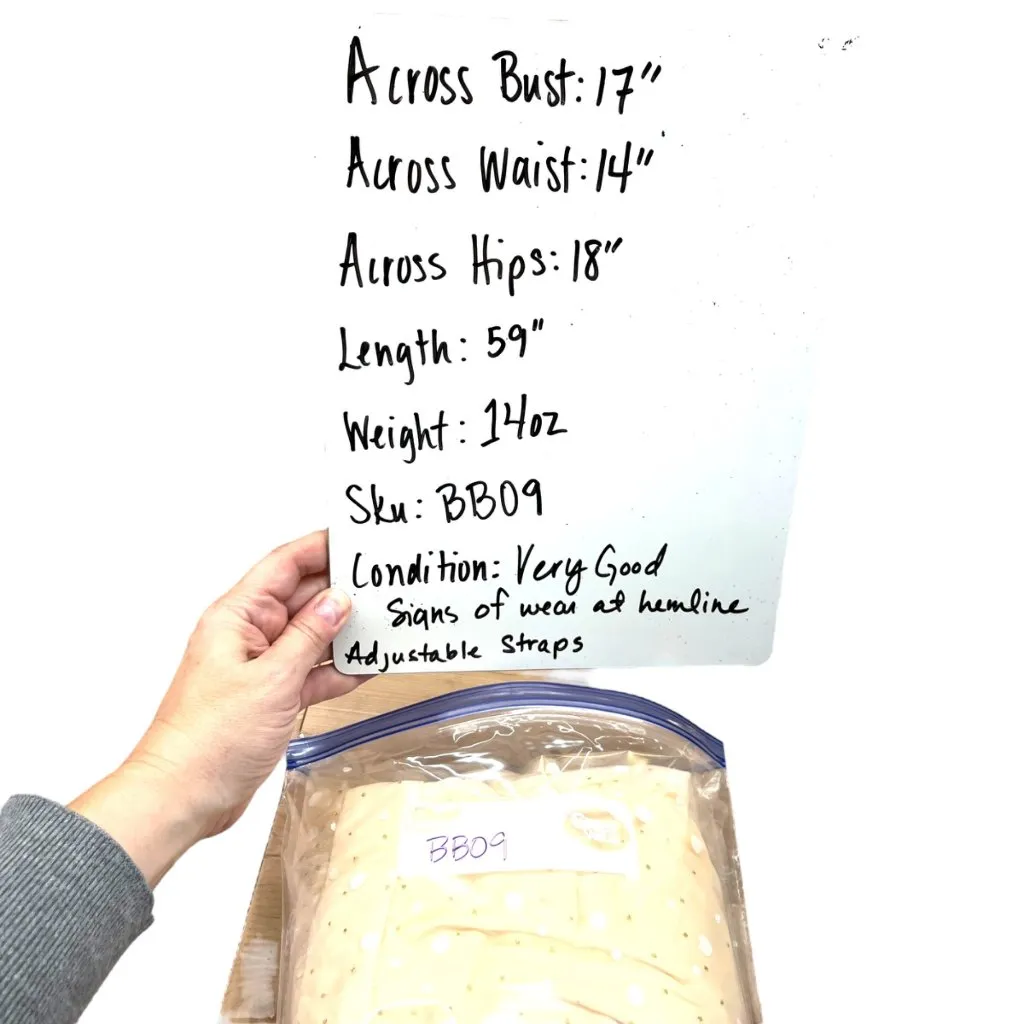 Across Bust: 17"
Across Waist: 14"
Across Hips: 18"
Length: 59"
Weight: 14oz
Sku: BB09
Condition: Very Good
Signs of wear at hemline
Adjustable Straps
BB09